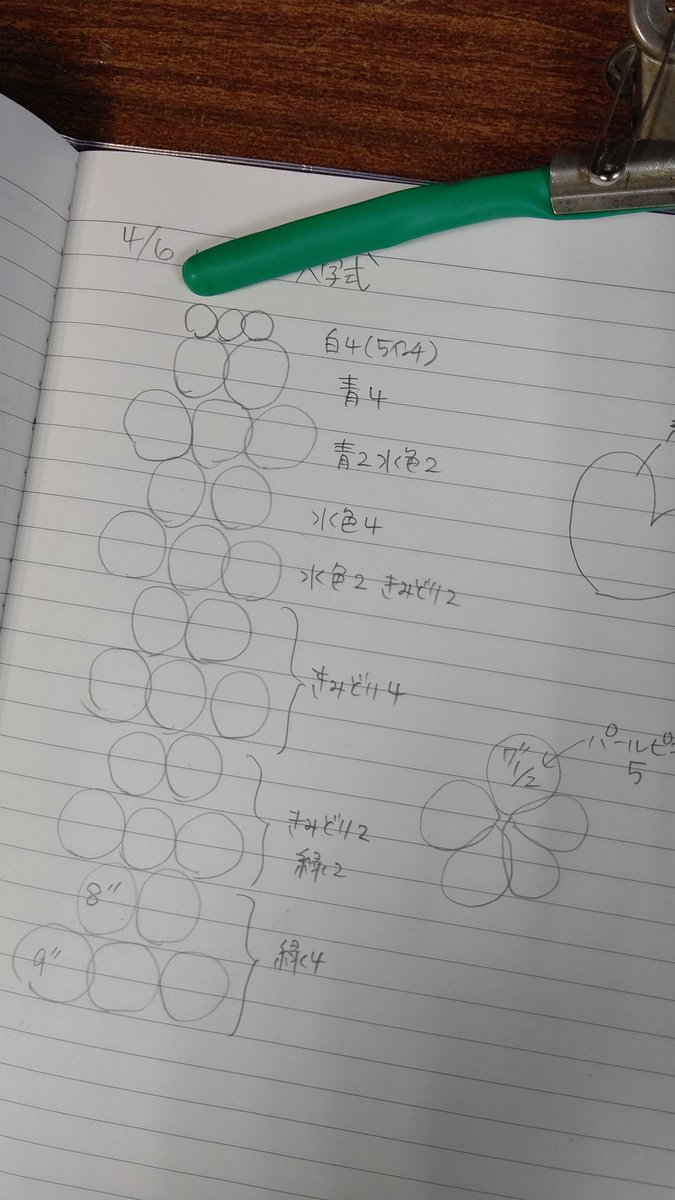 4/6 入学式
白4(5in4)
青4
青2水色2
水色4
水色2 きみどり2
きみどり4
きみどり2
緑2
8"
9"
緑4
7"1/2
パールピ
5